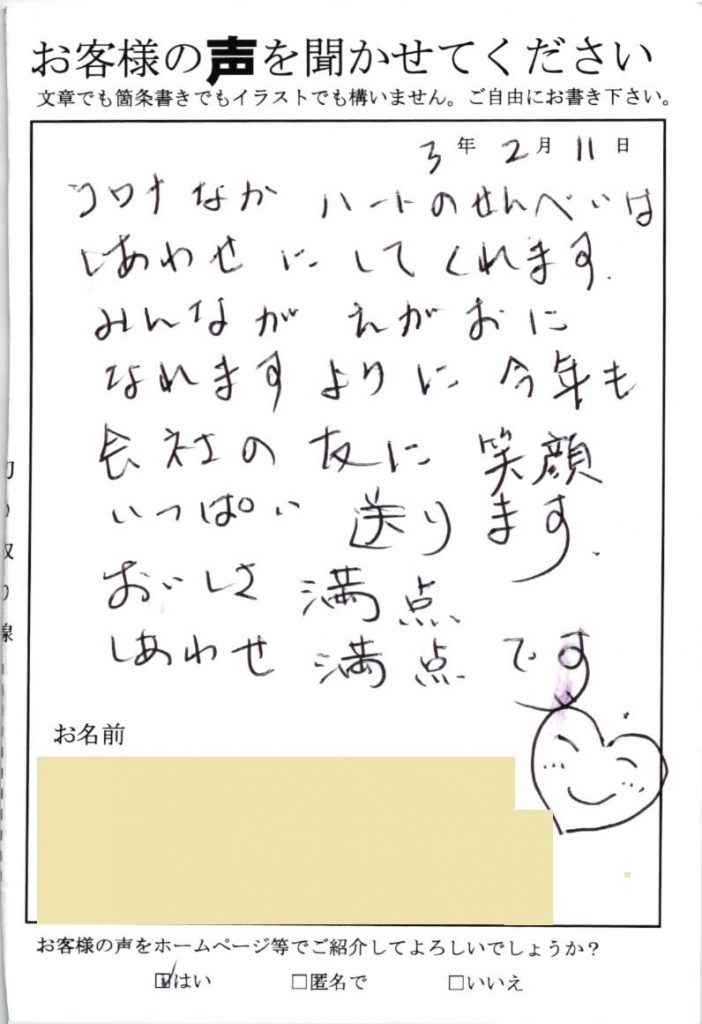 お客様の声を聞かせてください
文章でも箇条書きでもイラストでも構いません。ご自由にお書き下さい。
3年2月11日
コロナなか ハートのせんべいは
しあわせにしてくれます.
みんながえがおに
なれますよりに今年も
会社の友に笑顔
いっぱい送ります.
おいしさ満点
しあわせ満点です
お名前
お客様の声をホームページ等でご紹介してよろしいでしょうか?
☑はい □匿名で □いいえ